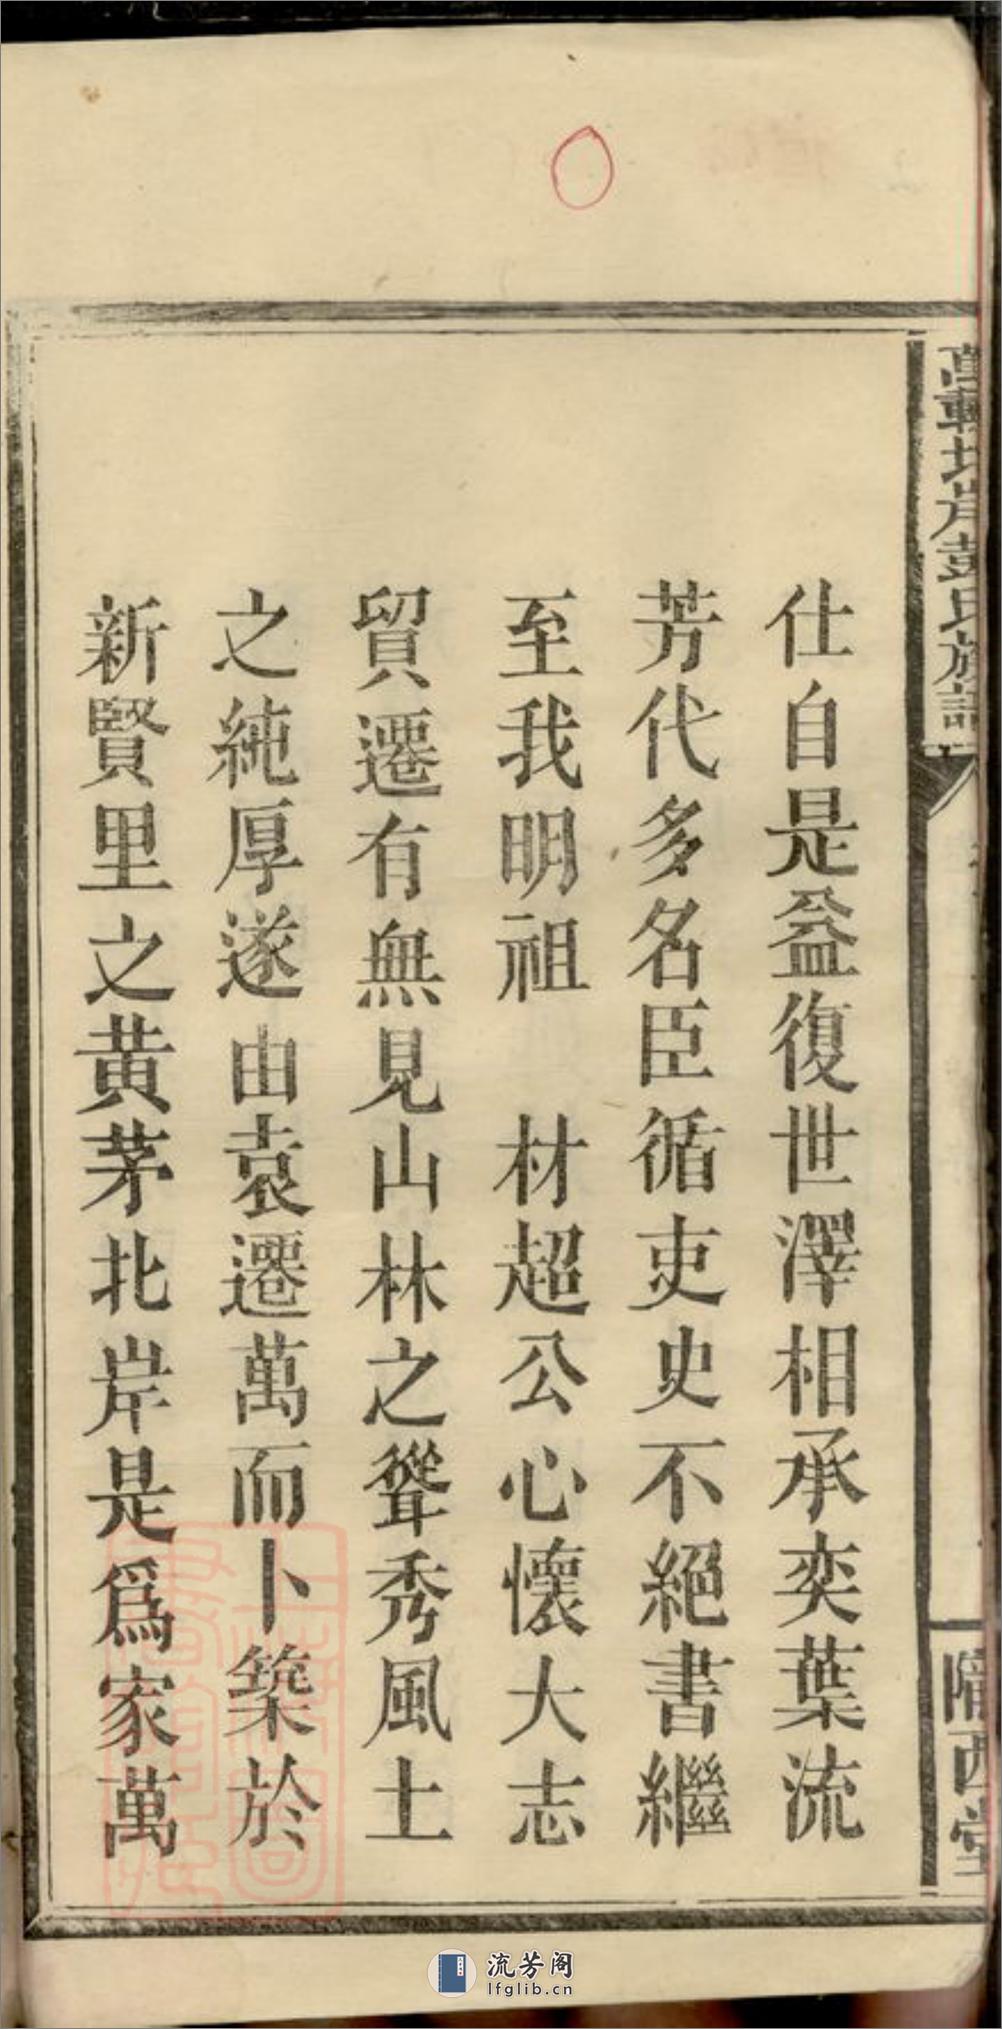 仕自是益復世澤相承奕葉流
芳代多名臣循吏史不絕書繼
至我明祖　材超公心懷大志
貿遷有無見山林之聳秀風土
之純厚遂由袁遷萬而卜築於
新賢里之黃茅北岸是爲家萬
萬載北岸彭氏族譜
隴西堂
流芳阁
lfglib.cn